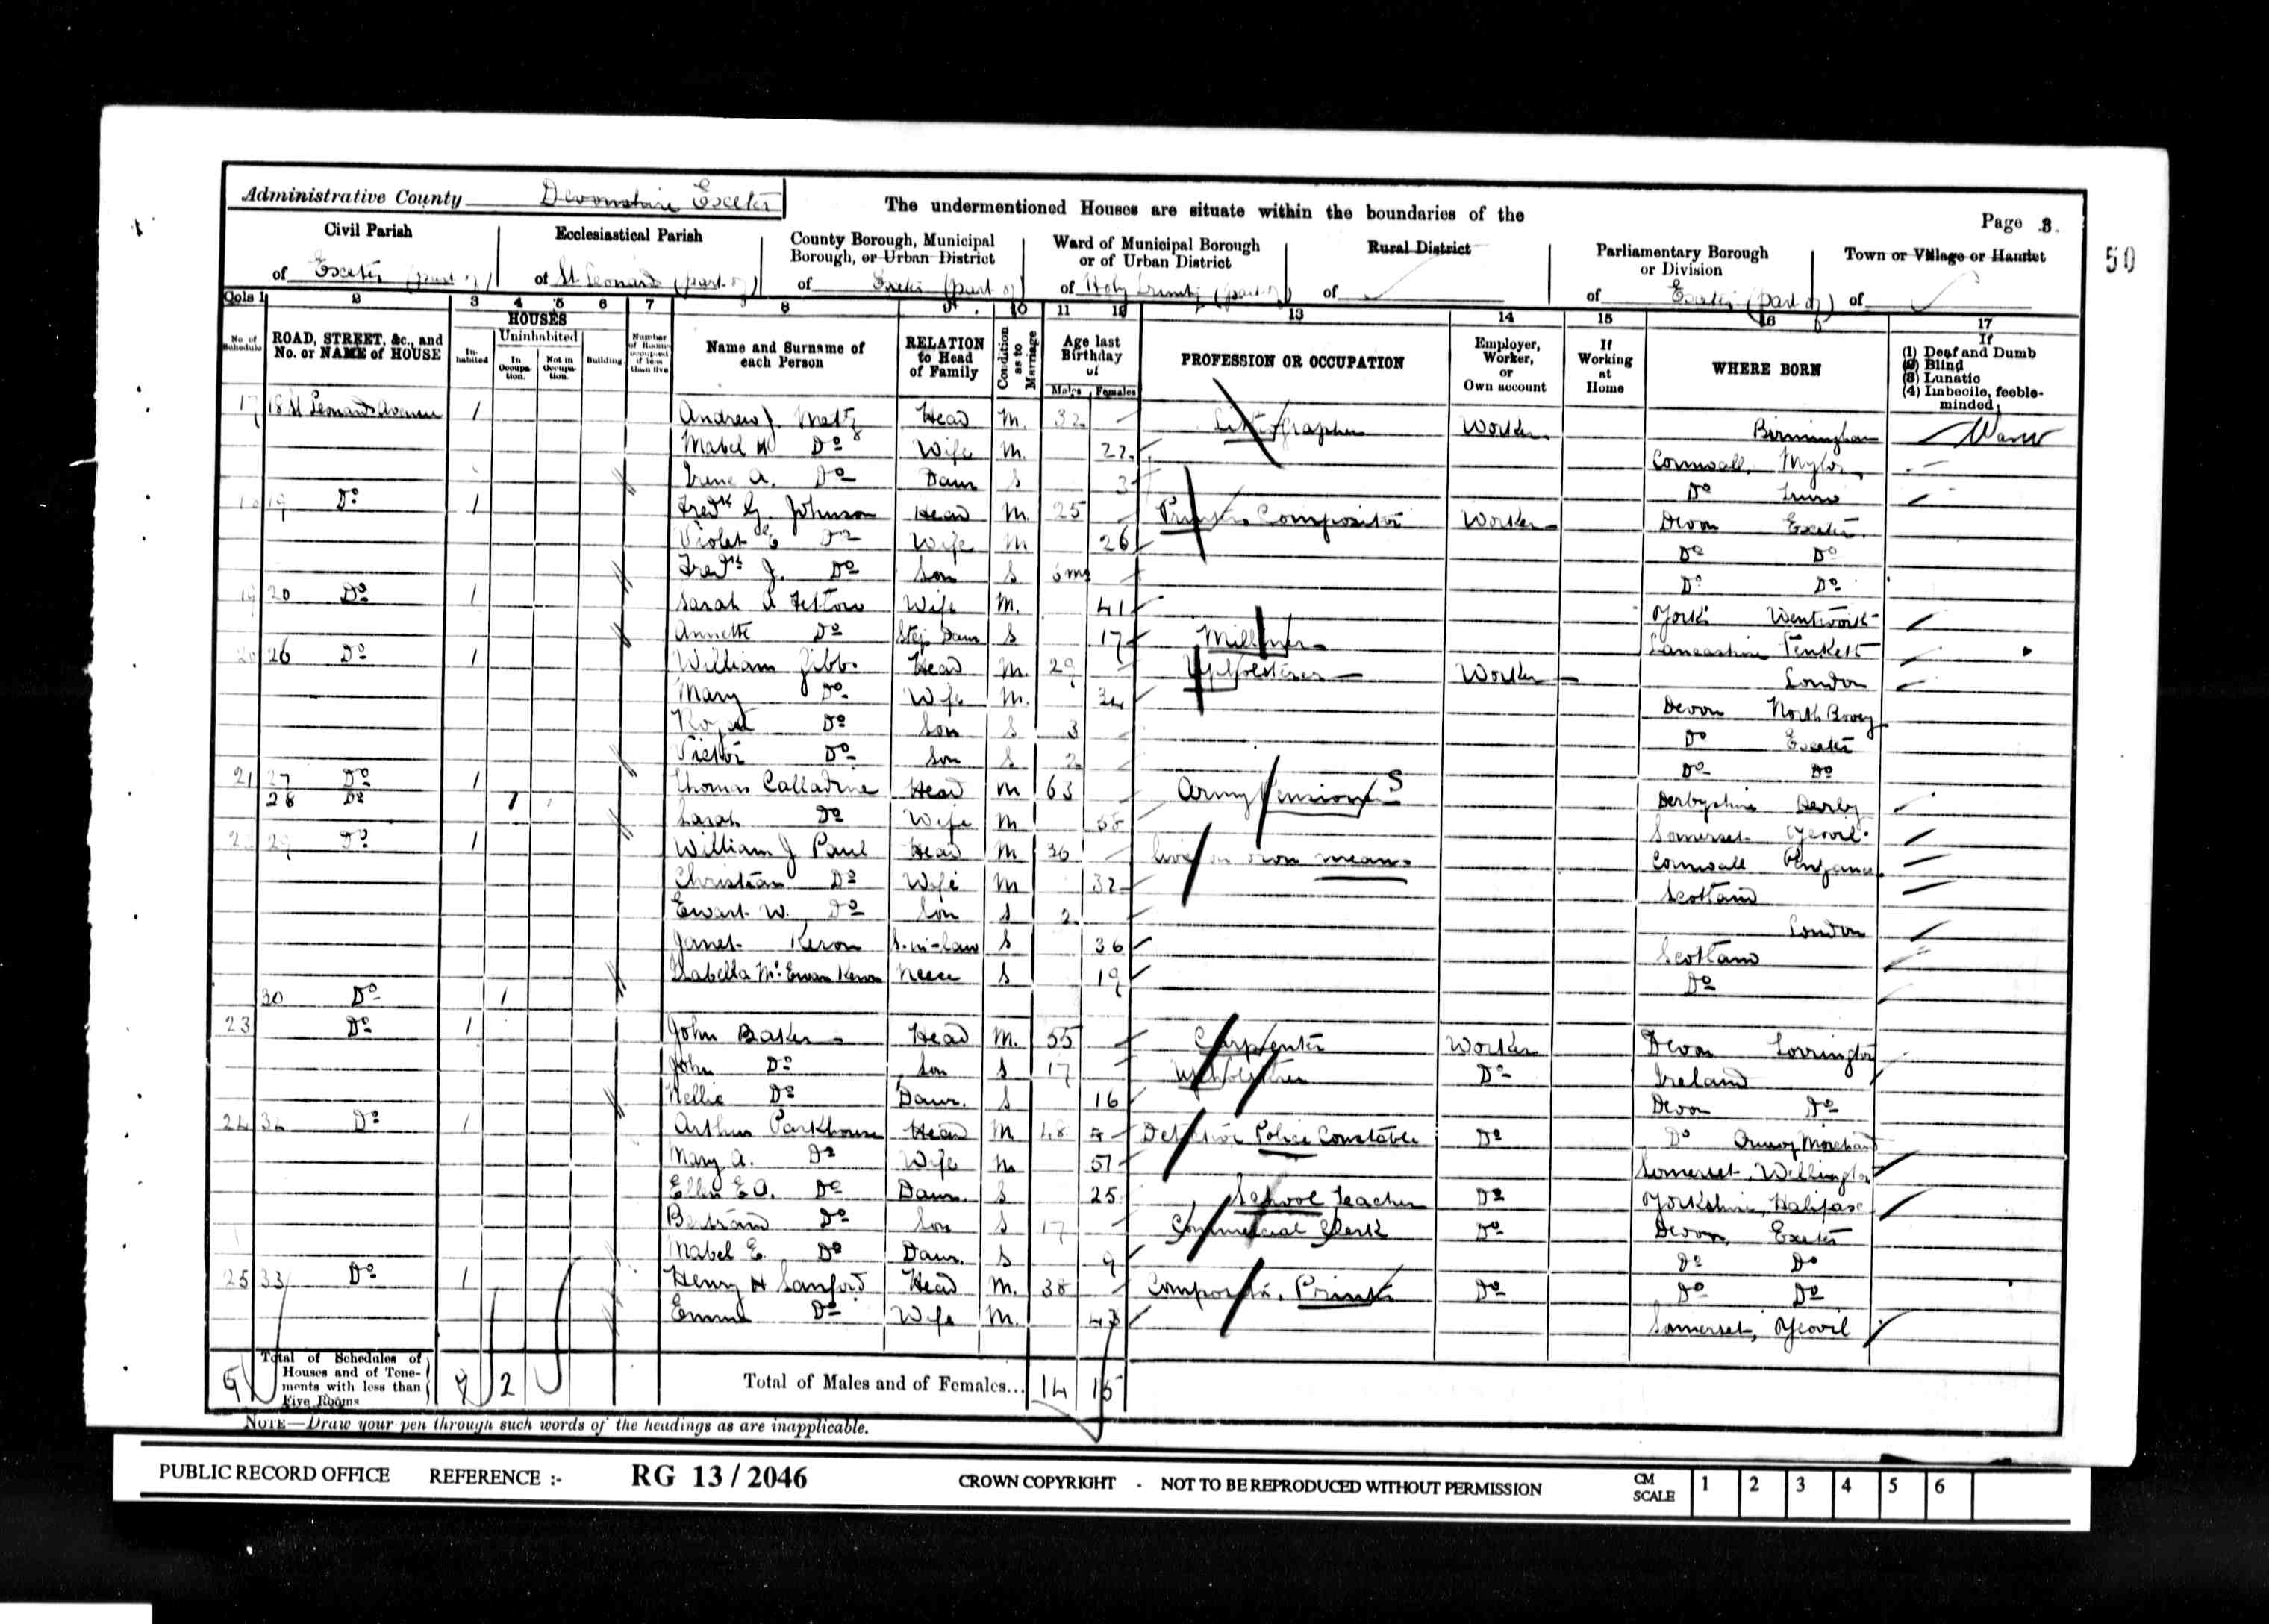 Administrative County Devonshire Exeter
The undermentioned Houses are situate within the boundaries of the
Page 8.
50
Civil Parish of Exeter (part of)
Ecclesiastical Parish of St Leonard (part of)
County Borough, Municipal Borough, or Urban District of Exeter (part of)
Ward of Municipal Borough or of Urban District of Holy Trinity (part of)
Rural District of
Parliamentary Borough or Division of Exeter (part of)
Town or Village or Hamlet of
Cols 1 2 3 4 5 6 7 8 9 10 11 12 13 14 15 16 17
No of Schedule
ROAD, STREET, &c., and No. or NAME of HOUSE
HOUSES
Inhabited
Uninhabited
In Occupation.
Not in Occupation.
Building
Number of Rooms occupied if less than five
Name and Surname of each Person
RELATION to Head of Family
Condition as to Marriage
Age last Birthday of
Males Females
PROFESSION OR OCCUPATION
Employer, Worker, or Own account
If Working at Home
WHERE BORN
If (1) Deaf and Dumb (2) Blind (3) Lunatic (4) Imbecile, feeble-minded
17 18 St Leonards Avenue 1 Andrew J. Metz Head M. 32 Lithographer Worker Birmingham
Mabel H Do Wife M. 22 Cornwall, Mylor
Irene A. Do Daur S 3 Do Truro
18 19 Do 1 Fredk G. Johnson Head M. 25 Printer Compositor Worker Devon Exeter
Violet E Do Wife M 26 Do Do
Fredk J. Do Son S Do Do
19 20 Do 1 Sarah Wife M. 41 York Wentworth
Annette Do Step Daur S 17 Milliner Lancashire Penketh
20 26 Do 1 William Gibbs Head M. 29 Upholsterer Worker London
Mary Do Wife M. 34 Devon North Bovey
Do Son S 3 Do Exeter
Victor Do Son S 2 Do Do
21 27 Do 1 Thomas Calladine Head M 63 Army Pensioner S Derbyshire Derby
28 Do 1
Sarah Do Wife M 58 Somerset Yeovil
22 29 Do 1 William J Paul Head M 36 Live on own means Cornwall Penzance
Christian Do Wife M 32 Scotland
Ewart W. Do Son S 2 London
Janet Keron S.in-law S 36 Scotland
Isabella McEwan Keron Neece S 19 Do
30 Do 1
23 Do 1 John Baker Head M. 55 Carpenter Worker Devon
John Do Son S 17 Upholsterer Do Ireland
Nellie Do Daur. S 16 Devon Do
24 32 Do 1 Arthur Parkhouse Head M 48 Detective Police Constable Do Do Morchard
Mary A. Do Wife M 51 Somerset, Wellington
Ellen E A. Do Daur. S 25 School Teacher Do Yorkshire, Halifax
Bertram Do Son S 17 Commercial Clerk Do Devon, Exeter
Mabel E. Do Daur. S 9 Do Do
25 33 Do 1 Henry H Sanford Head M. 38 Compositor, Printer Do Do Do
Emma Do Wife M. 43 Somerset, Yeovil
9 Total of Schedules of Houses and of Tenements with less than Five Rooms 9 2
Total of Males and of Females... 14 15
NOTE—Draw your pen through such words of the headings as are inapplicable.
PUBLIC RECORD OFFICE REFERENCE :- RG 13/2046 CROWN COPYRIGHT - NOT TO BE REPRODUCED WITHOUT PERMISSION
CM SCALE 1 2 3 4 5 6